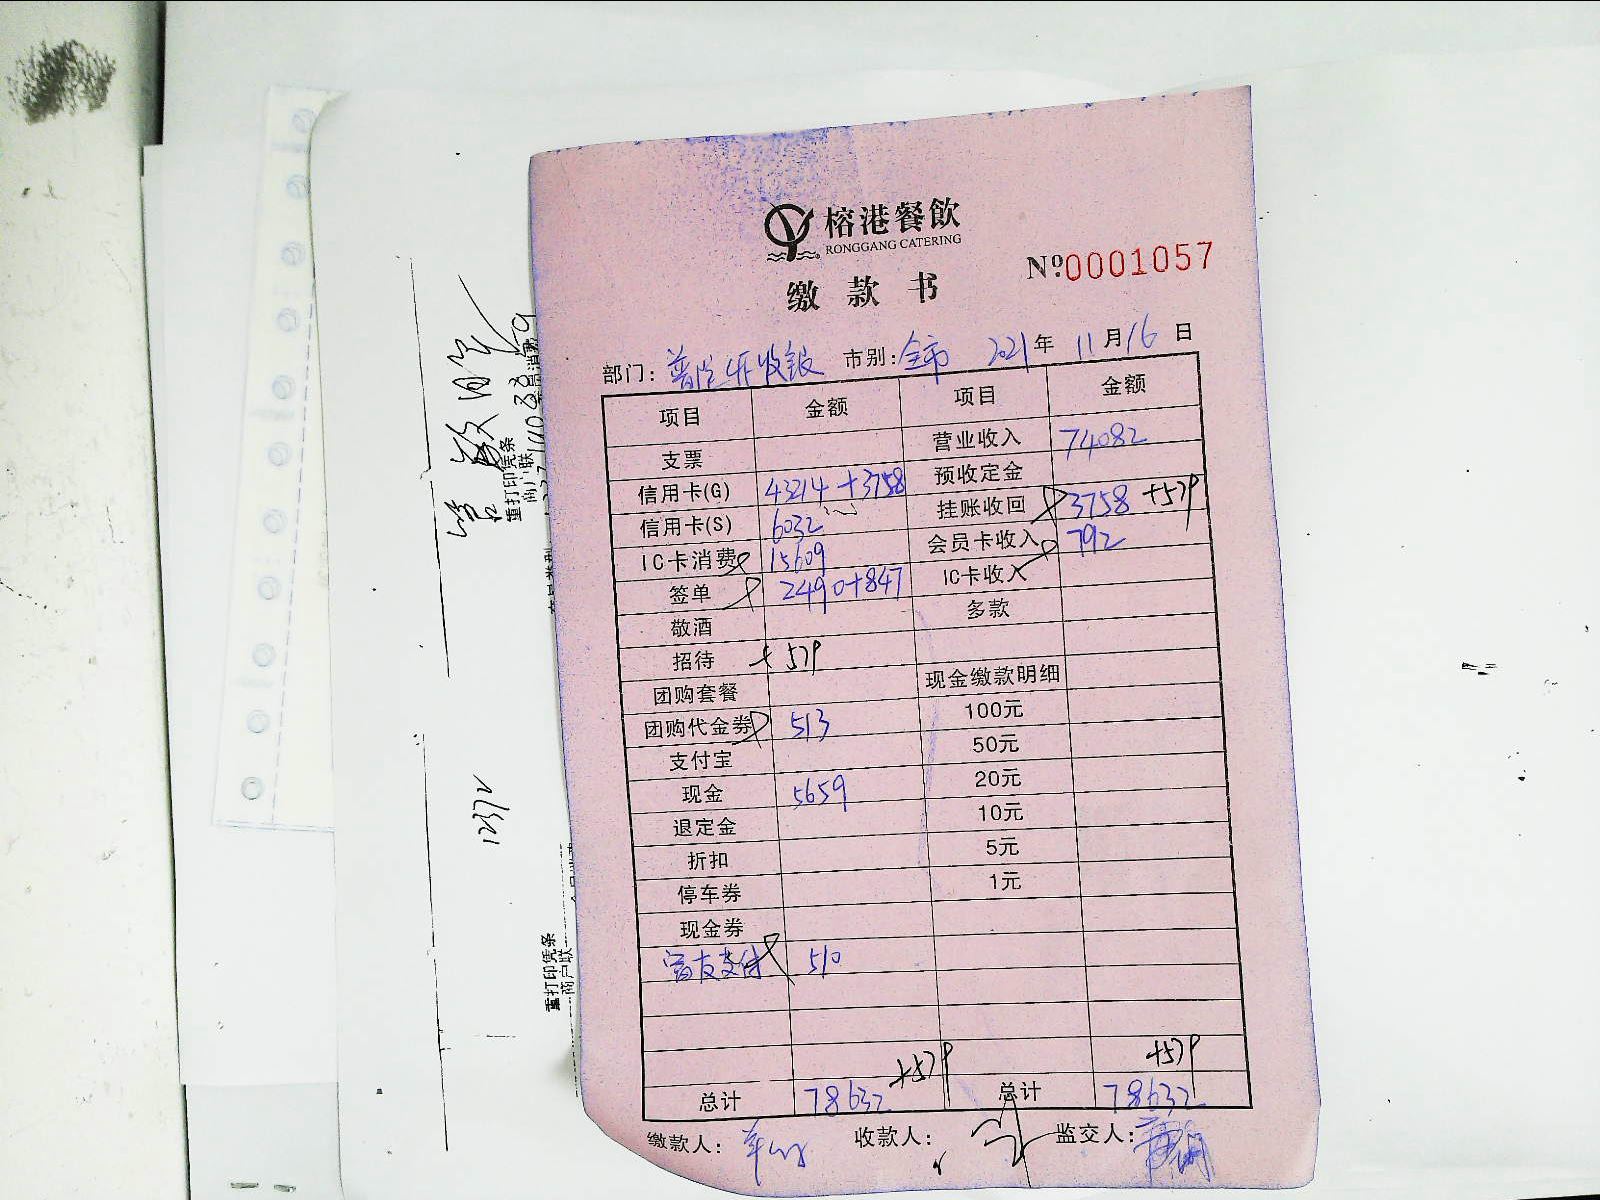 榕港餐飲
RONGGANG CATERING
缴款书
Nº.0001057
部门: 市别:全市 2021年11月16日
项目 金额 项目 金额
支票 营业收入 74082
信用卡(G) 43214+3758 预收定金
信用卡(S) 6032 挂账收回 3758 +579
IC卡消费 15609 会员卡收入 792
签单 2490+847 IC卡收入
敬酒 多款
招待 +579
团购套餐 现金缴款明细
团购代金券 513 100元
支付宝 50元
现金 5659 20元
退定金 10元
折扣 5元
停车券 1元
现金券
富友支付 510
+579 +579
总计 78632 总计 78632
缴款人: 收款人: 监交人:
重打印凭条
商户联
12372
重打印凭条
商户联